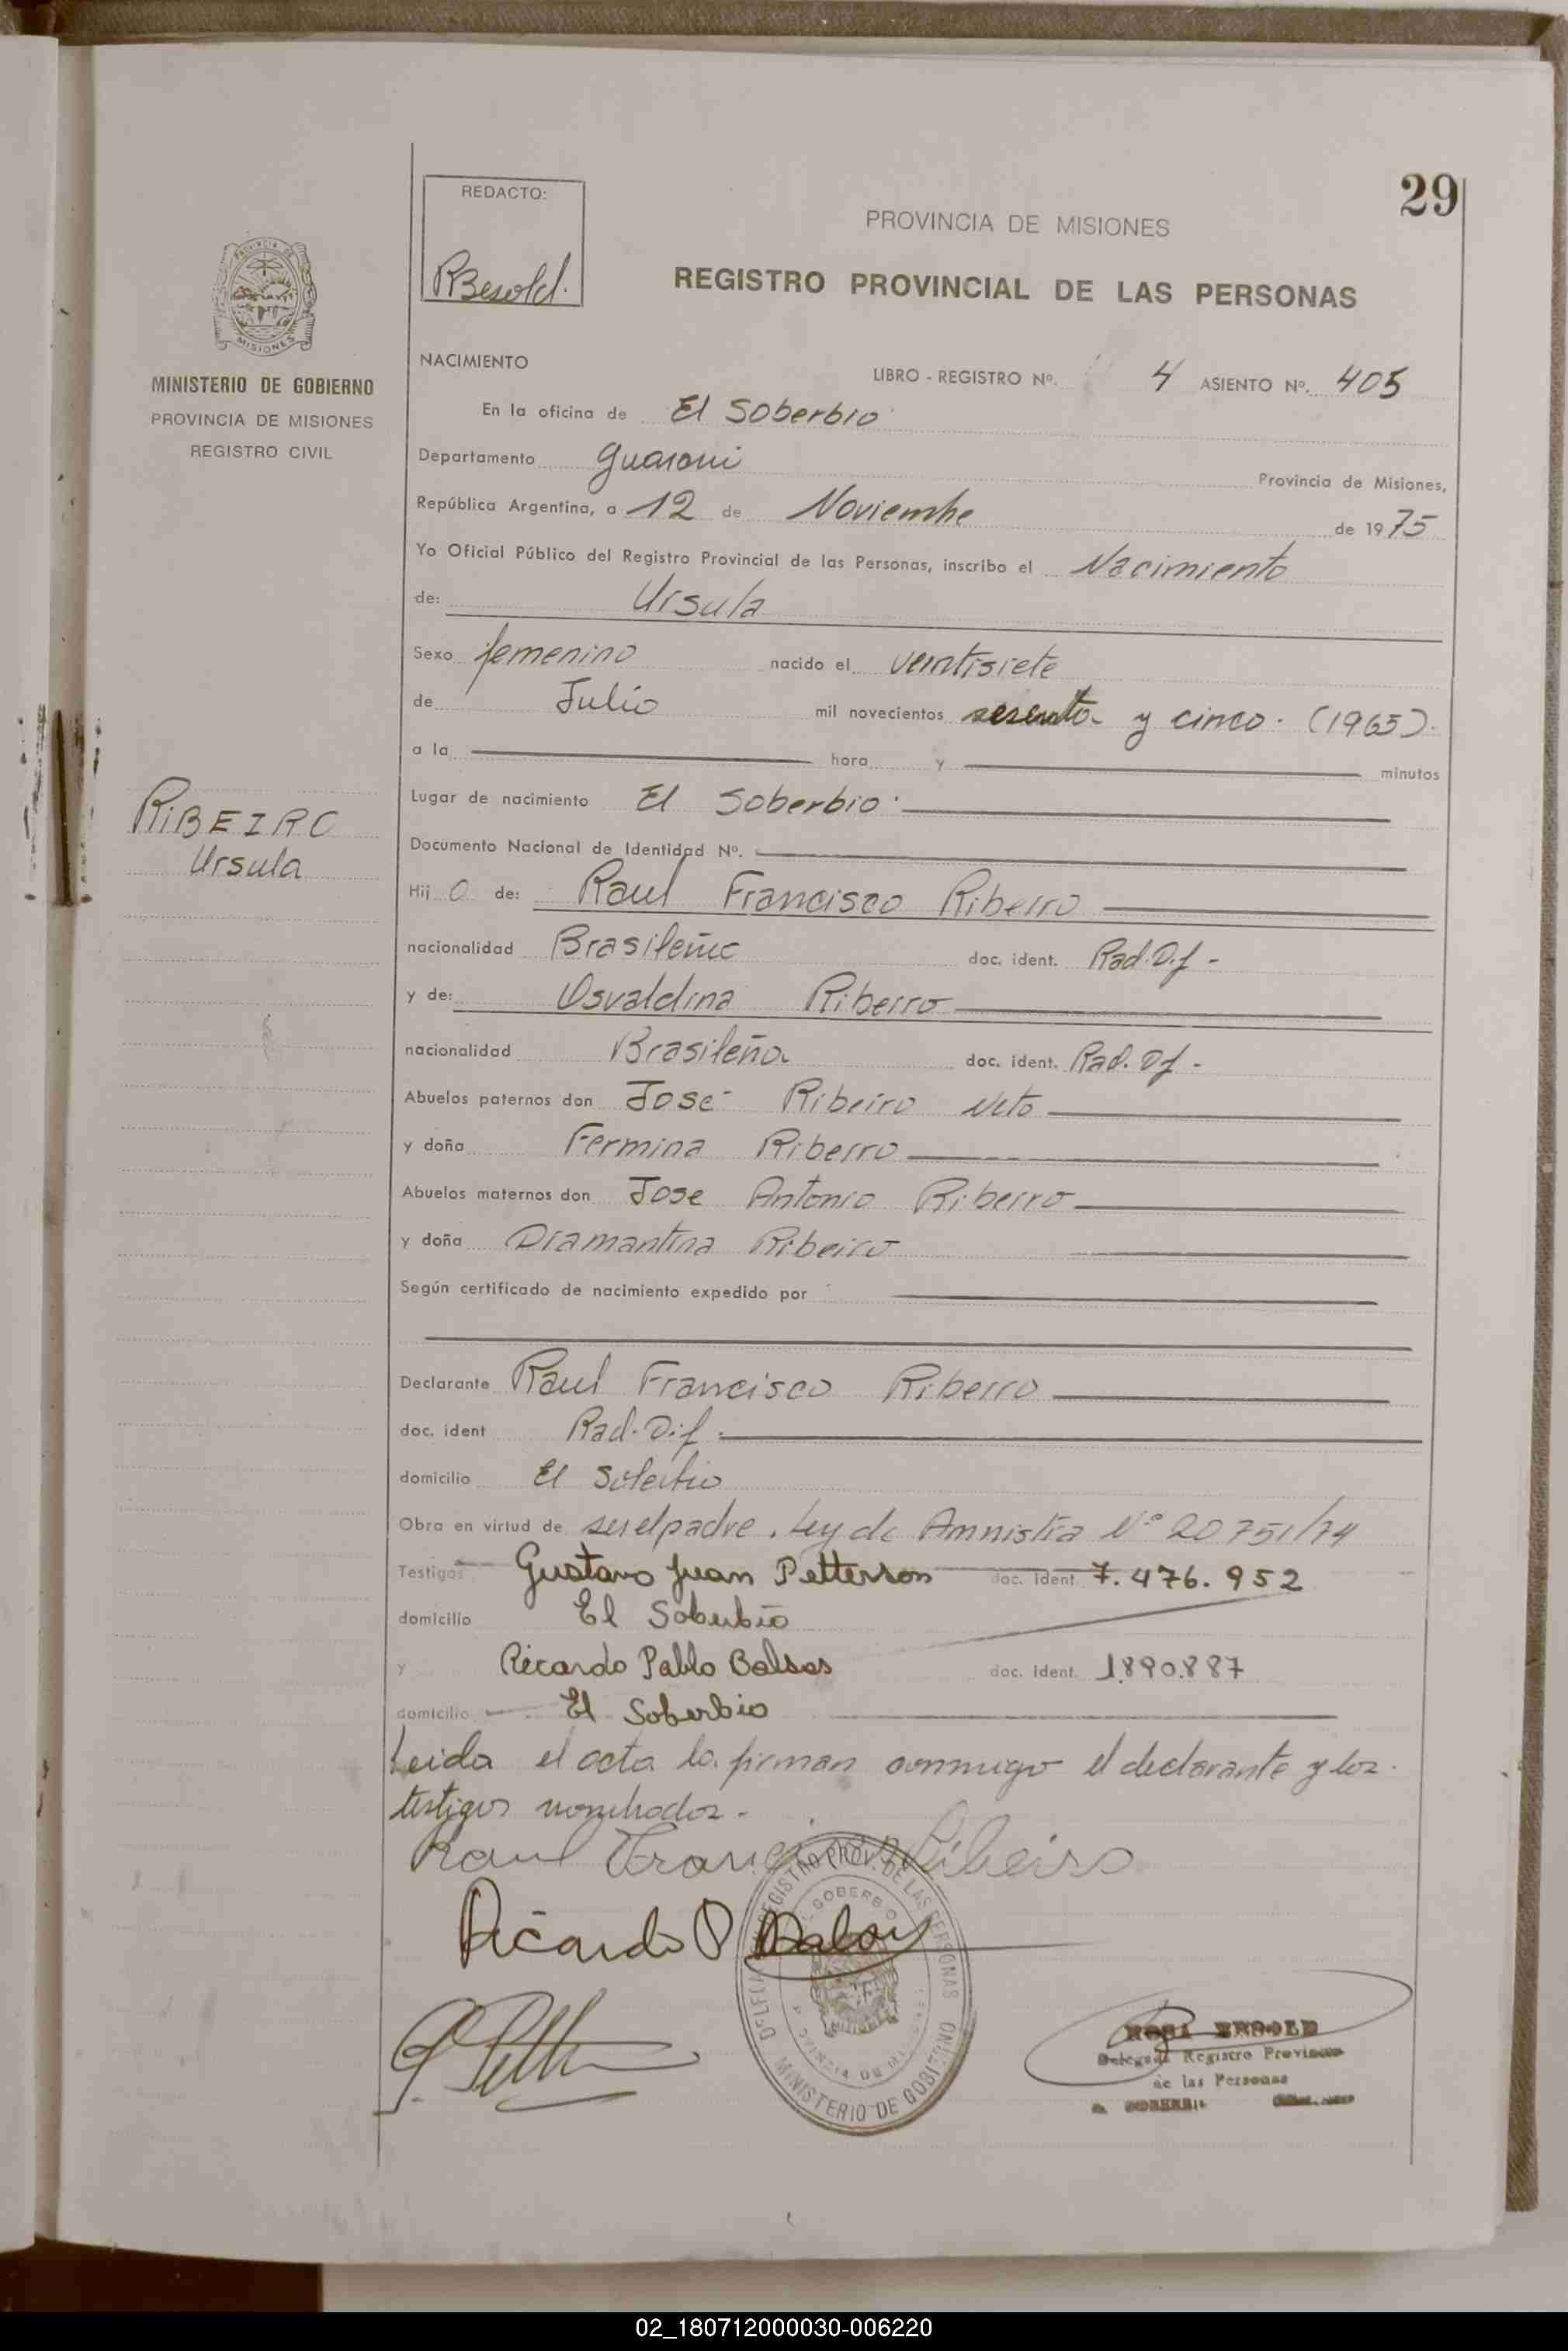 29
REDACTO:
RBesold.
PROVINCIA DE MISIONES
REGISTRO PROVINCIAL DE LAS PERSONAS
MISIONES
MINISTERIO DE GOBIERNO
PROVINCIA DE MISIONES
REGISTRO CIVIL
NACIMIENTO
LIBRO - REGISTRO Nº. 4 ASIENTO Nº. 405
En la oficina de El Soberbio
Departamento Guarani Provincia de Misiones,
República Argentina, a 12 de Noviembre de 1975
Yo Oficial Público del Registro Provincial de las Personas, inscribo el Nacimiento
de: Ursula
Sexo femenino nacido el veintisiete
de Julio mil novecientos sesenta y cinco. (1965).
a la hora y minutos
Lugar de nacimiento El Soberbio.
RIBEIRO
Ursula
Documento Nacional de Identidad Nº.
Hij o de: Raul Francisco Ribeiro
nacionalidad Brasileño doc. ident. Rad.D.f -
y de: Osvaldina Ribeiro
nacionalidad Brasileña doc. ident. Rad. Df -
Abuelos paternos don José Ribeiro Neto
y doña Fermina Ribeiro
Abuelos maternos don Jose Antonio Ribeiro
y doña Diamantina Ribeiro
Según certificado de nacimiento expedido por
Declarante Raul Francisco Ribeiro
doc. ident Rad. D.f.
domicilio El Soberbio
Obra en virtud de ser el padre. Ley de Amnistia Nº 20751/74
Testigos Gustavo Juan Petterson doc. ident. 7.476.952
domicilio El Soberbio
y Ricardo Pablo Balsas doc. ident. 1.890.887
domicilio El Soberbio
Leida el acta la firman conmigo el declarante y los
testigos nombrados.
Raul Francisco Ribeiro
Ricardo P
REGISTRO PROV. DE LAS PERSONAS
MINISTERIO DE GOBIERNO
ROSA BESOLD
Delegada Registro Provincial
de las Personas
02_180712000030-006220